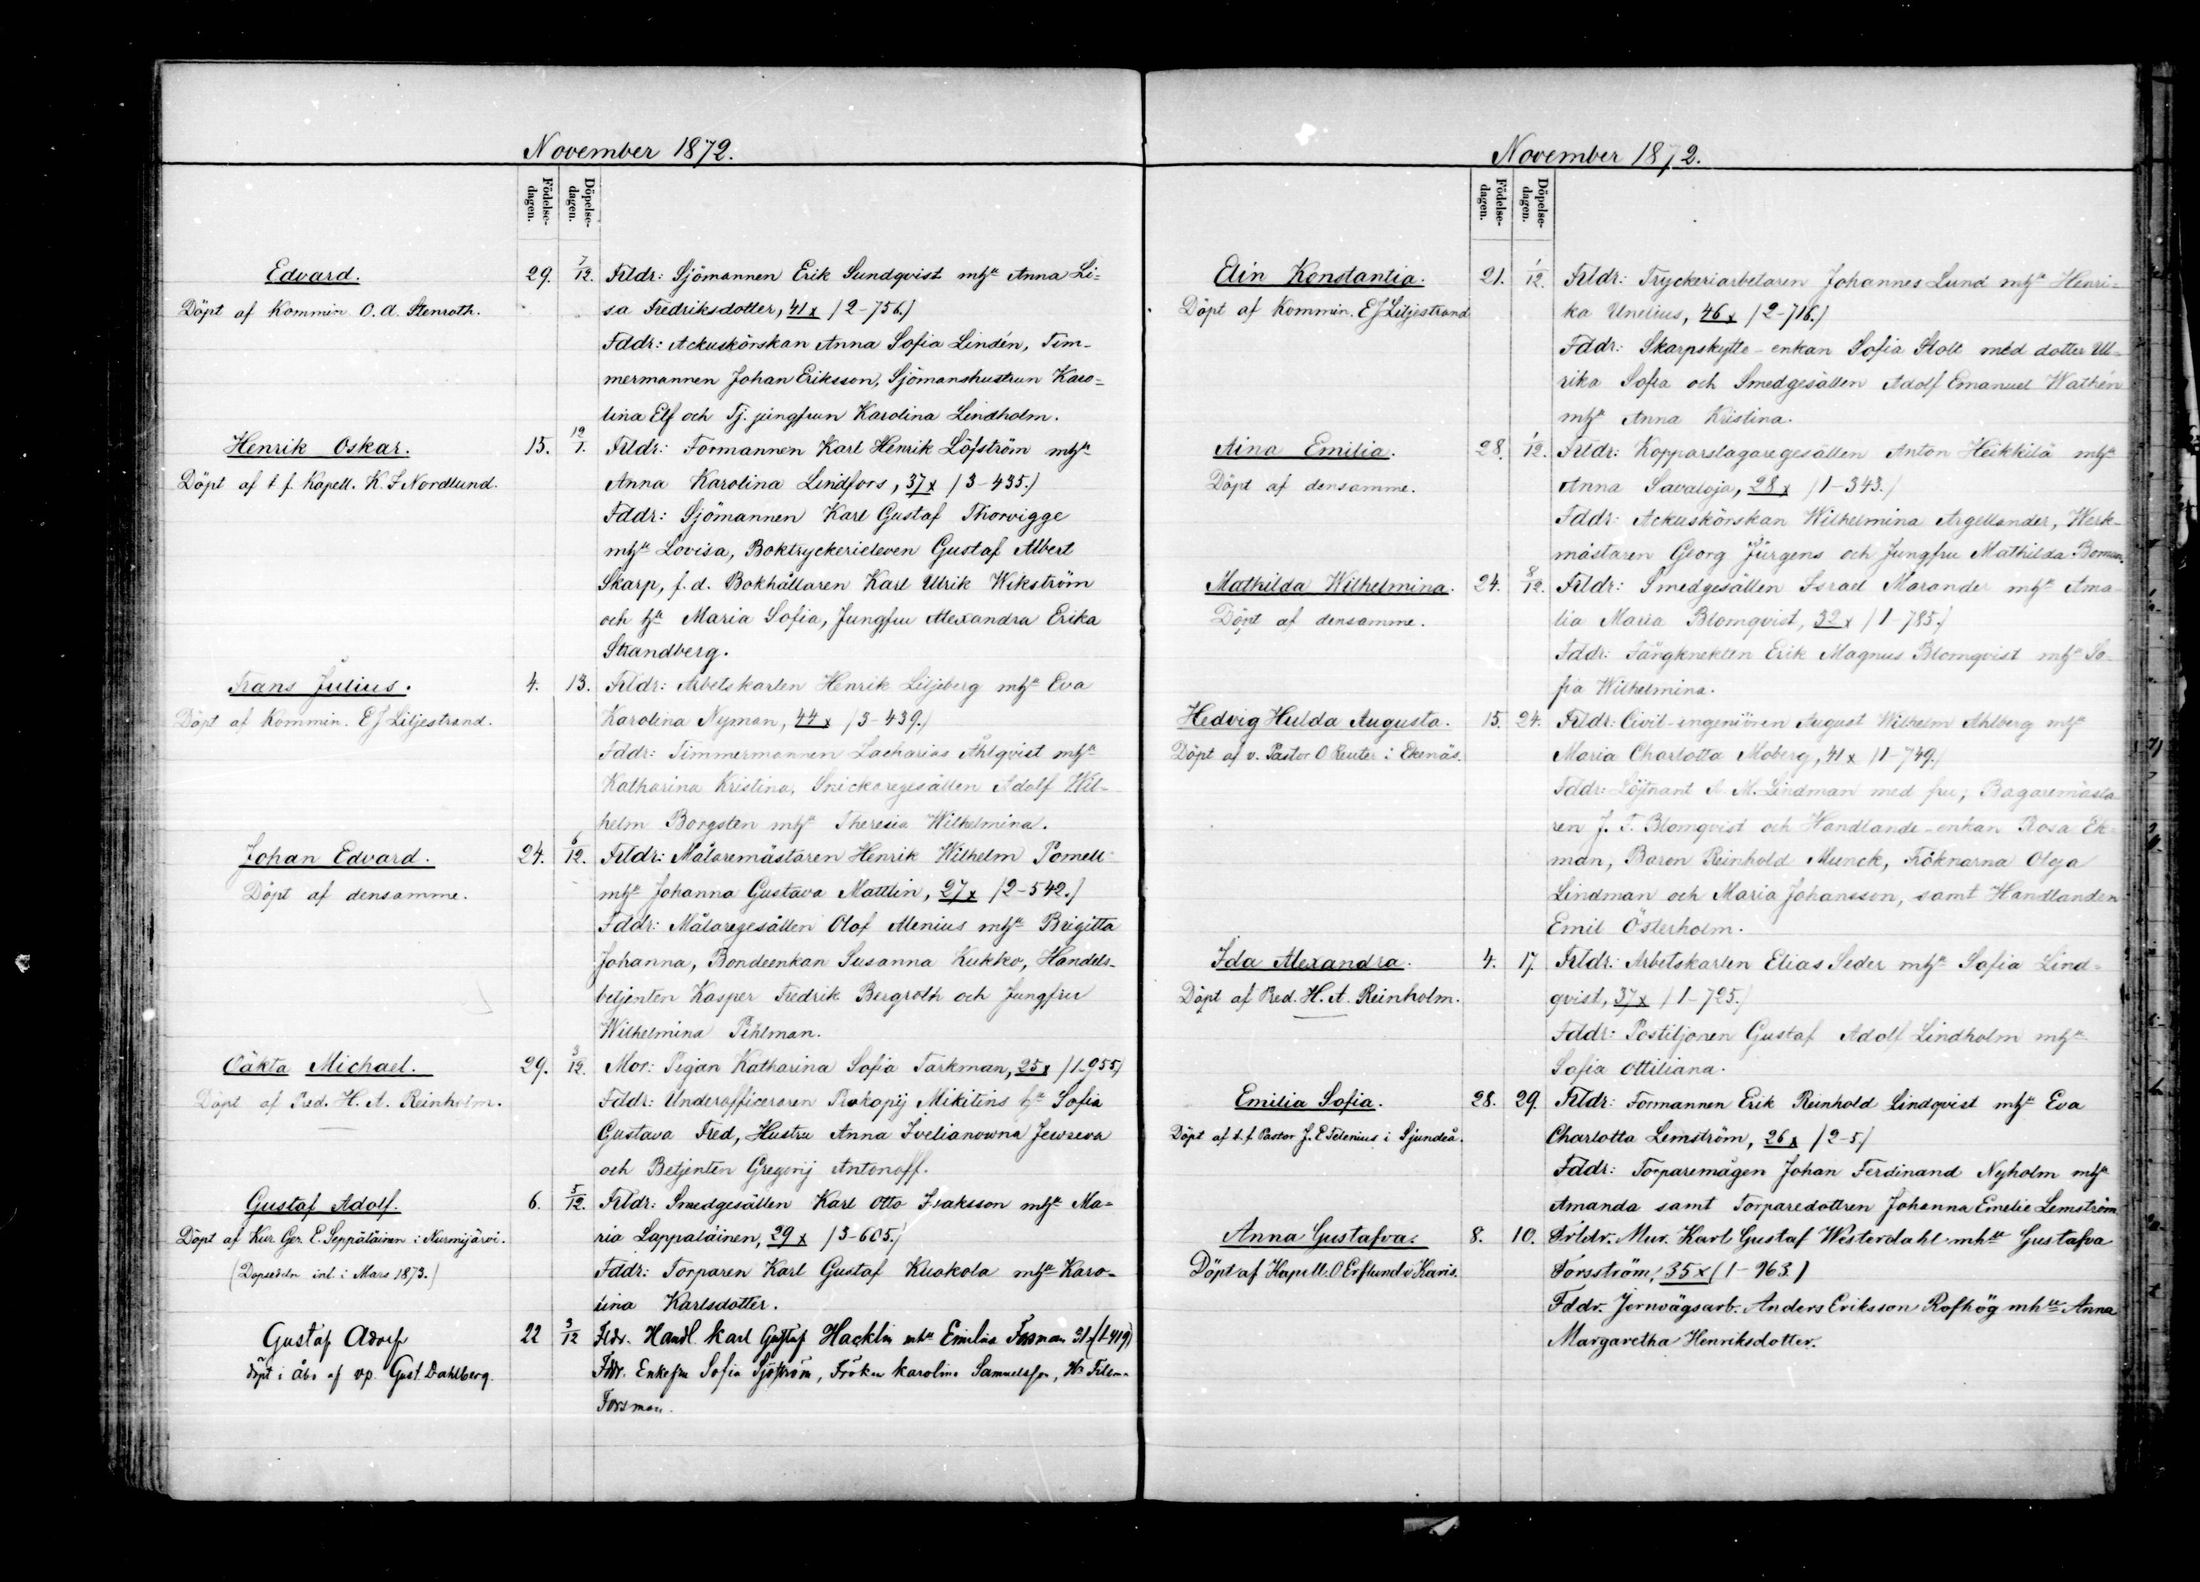 November 1872.
Födelse-
dagen.
Döpelse-
dagen.
Edvard. 29. 7/12. Frldr: Sjömannen Erik Sundqvist mhu Anna Li-
Döpt af Kommin. O. A. Stenroth. sa Fredriksdotter, 41 x /2-756./
Fddr: Ackuskörskan Anna Sofia Lindén, Tim-
mermannen Johan Eriksson, Sjömanshustrun Karo-
lina Elf och Tj. jungfrun Karolina Lindholm.
Henrik Oskar. 15. 12/1. Frldr: Formannen Karl Henrik Löfström mhu
Döpt af t. f. Kapell. K. F. Nordlund. Anna Karolina Lindfors, 37 x /3-435./
Fddr: Sjömannen Karl Gustaf Thorvigge
mhu Lovisa, Boktryckerieleven Gustaf Albert
Skarp, f. d. Bokhållaren Karl Ulrik Wikström
och hu Maria Sofia, Jungfru Alexandra Erika
Strandberg.
Frans Julius. 4. 13. Frldr: Arbetskarlen Henrik Liljeberg mhu Eva
Döpt af Kommin. E J Liljestrand. Karolina Nyman, 44 x /3-439./
Fddr: Timmermannen Zacharias Åhlqvist mhu
Katharina Kristina, Snickaregesällen Adolf Wil-
helm Borgsten mhu Theresia Wilhelmina.
Johan Edvard. 24. 6/12. Frldr: Målaremästaren Henrik Wilhelm Pomell
Döpt af densamme. mhu Johanna Gustava Mattlin, 27 x /2-542./
Fddr: Målaregesällen Olof Alenius mhu Brigitta
Johanna, Bondeenkan Susanna Kukko, Handels-
betjenten Kasper Fredrik Bergroth och Jungfru
Wilhelmina Pihlman.
Oäkta Michael. 29. 3/12. Mor: Pigan Katharina Sofia Tarkman, 25 x /1-955/
Döpt af Pred. H. A. Reinholm. Fddr: Underofficeraren Prokopij Mikitins hu Sofia
Gustava Fred, Hustru Anna Ivelianowna Jewseva
och Betjenten Gregorij Antonoff.
Gustaf Adolf. 6. 5/12. Frldr: Smedgesällen Karl Otto Isaksson mhu Ma-
Döpt af Kur. Ger. E. Seppäläinen i Nurmijärvi. ria Lappalainen, 29 x /3-605./
(Dopsedeln inl. i Mars 1873.) Fddr: Torparen Karl Gustaf Kuokola mhu Karo-
lina Karlsdotter.
Gustaf Adolf 22 3/12 Fldr. Handl. Karl Gustaf Hacklin mhu Emilia Forsman 21 x (1-419)
döpt i Åbo af vp. Gust. Dahlberg. Fddr. Enkefru Sofia Sjöström, Fröken Karolina Samuelsson, Hr
Forsman.
November 1872.
Födelse-
dagen.
Döpelse-
dagen.
Elin Konstantia. 21. 1/12. Frldr: Tryckeriarbetaren Johannes Lund mhu Henri-
Döpt af Kommin. E J Liljestrand ka Unelius, 46 x /2-716./
Fddr: Skarpskytte-enkan Sofia Stolt med dotter Ul-
rika Sofia och Smedgesällen Adolf Emanuel Wathén
mhu Anna Kristina.
Aina Emilia. 28. 1/12. Frldr: Kopparslagaregesällen Anton Heikkilä mhu
Döpt af densamme. Anna Savaloja, 28 x /1-343./
Fddr: Ackuskörskan Wilhelmina Argellander, Werk-
mästaren Georg Jürgens och Jungfru Mathilda Boman.
Mathilda Wilhelmina. 24. 8/12. Frldr: Smedgesällen Israel Marander mhu Ama-
Döpt af densamme. lia Maria Blomqvist, 32 x /1-785./
Fddr: Fångknekten Erik Magnus Blomqvist mhu So-
fia Wilhelmina.
Hedvig Hulda Augusta. 15. 24. Frldr: Civil-ingeniören August Wilhelm Ahlberg mhu
Döpt af v. Pastor O Reuter i Ekenäs. Maria Charlotta Moberg, 41 x /1-749./
Fddr: Löjtnant A. M. Lindman med fru, Bagaremästa-
ren J. F. Blomqvist och Handlande-enkan Rosa Ek-
man, Baron Reinhold Munck, Fröknarna Olga
Lindman och Maria Johansson, samt Handlanden
Emil Österholm.
Ida Alexandra. 4. 17. Frldr: Arbetskarlen Elias Seder mhu Sofia Lind-
Döpt af Pred. H. A. Reinholm. qvist, 37 x /1-725./
Fddr: Postiljonen Gustaf Adolf Lindholm mhu
Sofia Ottiliana.
Emilia Sofia. 28. 29. Frldr: Formannen Erik Reinhold Lindqvist mhu Eva
Döpt af t. f. Pastor J. E Telenius i Sjundeå. Charlotta Lemström, 26 x /2-5/
Fddr: Torparemågen Johan Ferdinand Nyholm mhu
Amanda samt Torparedottren Johanna Emelie Lemström
Anna Gustafva. 8. 10. Frldr. Mur. Karl Gustaf Westerdahl mhu Gustafva
Döpt af Kapell. O Erflund i Karis. Forsström, 35 x (1-963)
Fddr. Jernvägsarb. Anders Eriksson Rofhög mhu Anna
Margaretha Henriksdotter.